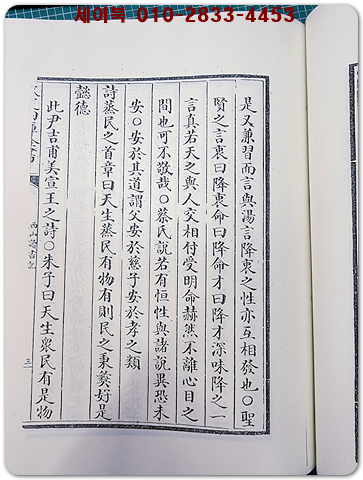 세이북 010-2833-4453
是又兼習而言與湯言降衷之性亦互相發也○聖
賢之言衷曰降衷命曰降命才曰降才深味降之一
言真若天之與人交相付受明命赫然不離心目之
間也可不敬哉○蔡氏說若有恒性與諸說異恐未
安○安於其道謂父安於慈子安於孝之類
詩蒸民之首章曰天生蒸民有物有則民之秉彛好是
懿德
此尹吉甫美宣王之詩○朱子曰天生衆民有是物
西山讀書記
三